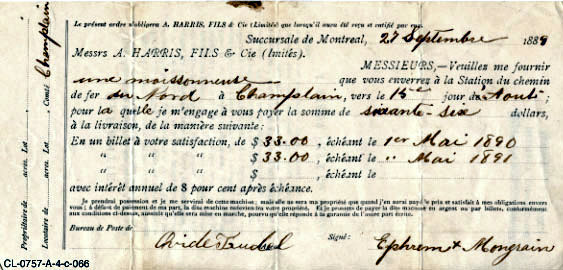 Le présent ordre n'obligera A. HARRIS, FILS & Cie (Limitée) que lorsqu'il aura été reçu et ratifié par eux.
Succursale de Montreal, 27 Septembre 1889
Messrs A. HARRIS, FILS & Cie (limités).
MESSIEURS,—Veuillez me fournir
une moissonneuse que vous enverrez à la Station du chemin
de fer du Nord à Champlain, vers le 15 jour d'Aout;
pour la quelle je m'engage à vous payer la somme de sixante-six dollars,
à la livraison, de la manière suivante:
En un billet à votre satisfaction, de $ 33.00 , échéant le 1er Mai 1890
" " " $ 33.00 , échéant le " Mai 1891
" " " $ , échéant le
avec intérêt annuel de 8 pour cent après échéance.
Je prendrai possession et je me servirai de cette machine; mais elle ne sera ma propriété que quand j'en aurai payé le prix et satisfait à mes obligations envers
vous; à défaut de paiement de ma part, la dite machine retournera en votre propriété. Et je promets de payer la dite machine en argent ou par billets, conformément
aux conditions ci-dessus, aussitôt qu'elle sera mise en marche, pourvu qu'elle réponde à la garantie de l'autre part.
Bureau de Poste de
Signé: Ephrem Mongrain
Propriétaire de acres. Lot Comté Champlain
Locataire de acres. Lot
CL-0757-A-4-c-066